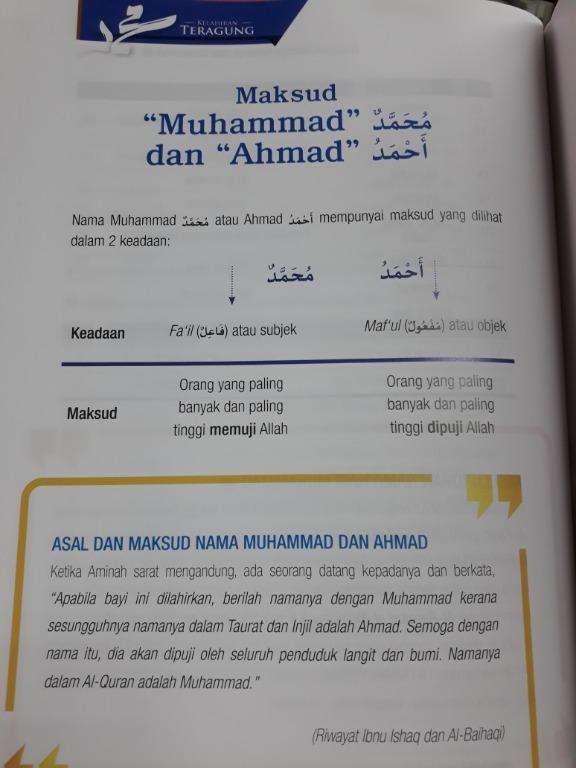 محمد
KELAHIRAN
TERAGUNG
Maksud
“Muhammad” مُحَمَّدٌ
dan “Ahmad” أَحْمَدُ
Nama Muhammad مُحَمَّدٌ atau Ahmad أَحْمَدُ mempunyai maksud yang dilihat
dalam 2 keadaan:
مُحَمَّدٌ أَحْمَدُ
Keadaan Fa‘il (فَاعِلٌ) atau subjek Maf‘ul (مَفْعُولٌ) atau objek
Maksud
Orang yang paling
banyak dan paling
tinggi memuji Allah
Orang yang paling
banyak dan paling
tinggi dipuji Allah
ASAL DAN MAKSUD NAMA MUHAMMAD DAN AHMAD
Ketika Aminah sarat mengandung, ada seorang datang kepadanya dan berkata,
“Apabila bayi ini dilahirkan, berilah namanya dengan Muhammad kerana
sesungguhnya namanya dalam Taurat dan Injil adalah Ahmad. Semoga dengan
nama itu, dia akan dipuji oleh seluruh penduduk langit dan bumi. Namanya
dalam Al-Quran adalah Muhammad.”
(Riwayat Ibnu Ishaq dan Al-Baihaqi)